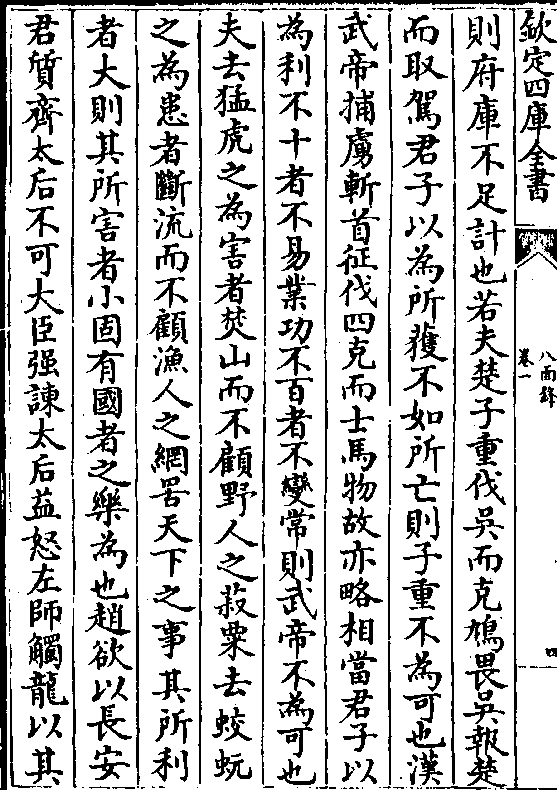 欽定四庫全書
八面鋒
卷一
四
則府庫不足計也若夫楚子重伐吳而克鳩畏吳報楚
而取駕君子以為所獲不如所亡則子重不為可也漢
武帝捕虜斬首征伐四克而士馬物故亦略相當君子以
為利不十者不易業功不百者不變常則武帝不為可也
夫去猛虎之為害者焚山而不顧野人之菽粟去蛟蚖
之為患者斷流而不顧漁人之網罟天下之事其所利
者大則其所害者小固有國者之樂為也趙欲以長安
君質齊太后不可大臣强諫太后益怒左師觸龍以其